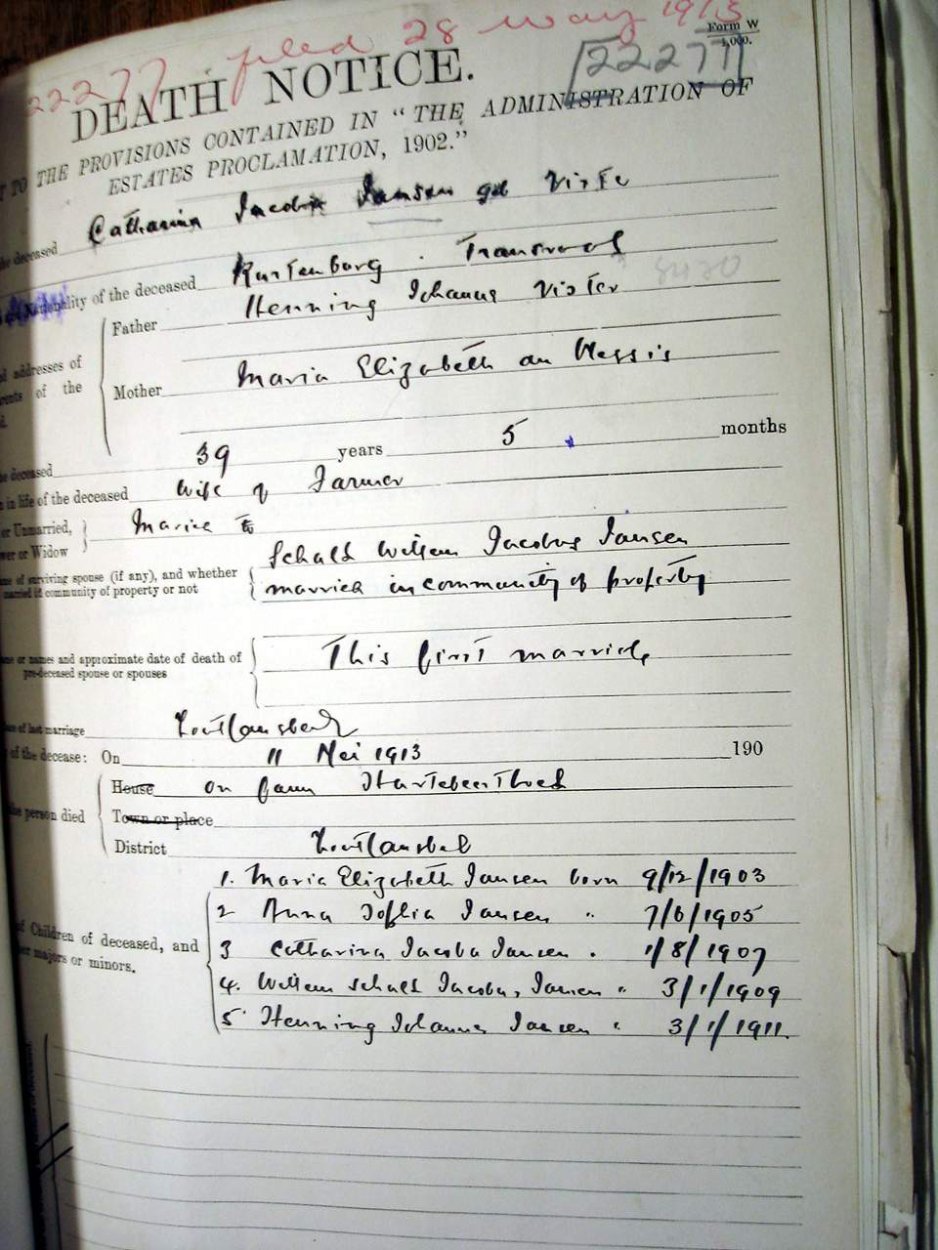 22277 filed 28 May 1913
Form W
1,000.
22277
DEATH NOTICE.
TO THE PROVISIONS CONTAINED IN "THE ADMINISTRATION OF
ESTATES PROCLAMATION, 1902."
deceased Catharina Jacoba Jansen
of the deceased Rustenburg . Transvaal
8420
Father Henning Johannes
addresses of
of the
Mother Maria Elizabeth
deceased 39 years 5 months
in life of the deceased Wife of Farmer
or Unmarried,
or Widow
Schalk Willem Jacobus Jansen
of surviving spouse (if any), and whether
married in community of property or not married in community of property
or names and approximate date of death of This first
pre-deceased spouse or spouses
of last marriage Zoutpansberg
of the decease: On 11 Mei 1913 190
House on farm
person died Town or place
District Zoutpansberg
1. Maria Elizabeth Jansen born 9/12/1903
2 Anna Sophia Jansen " 7/6/1905
of Children of deceased, and
majors or minors. 3 Catharina Jacoba Jansen " 1/8/1907
4. Willem Schalk Jacobus Jansen " 3/1/1909
5 Henning Johannes Jansen " 3/1/1911.